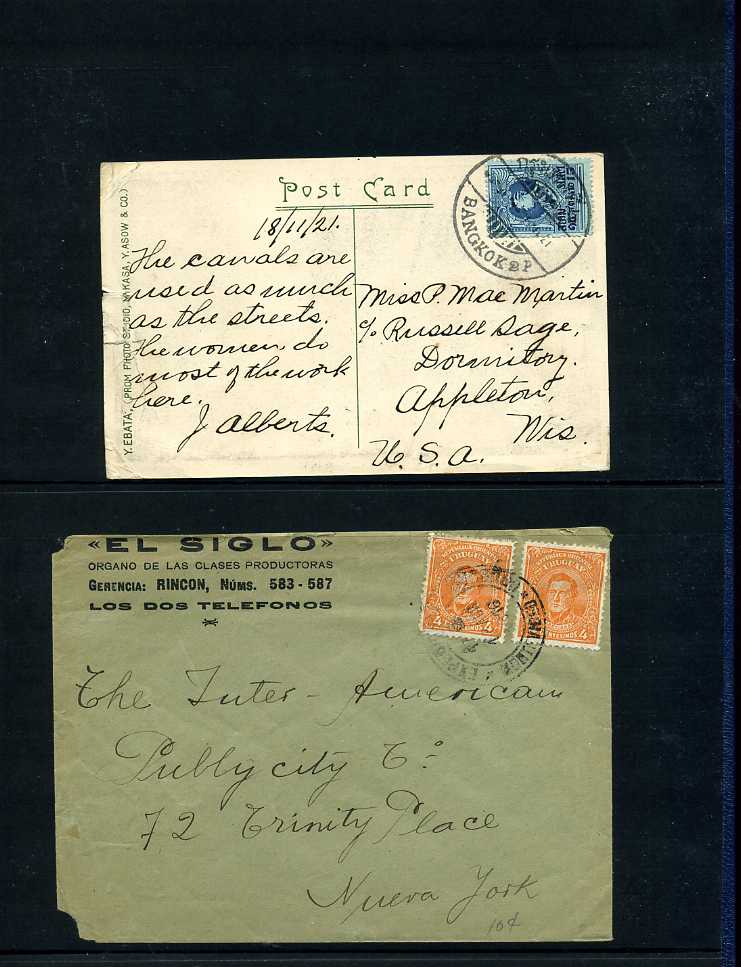 Post Card
18/11/21.
The canals are
used as much
as the streets.
The women do
most of the work
here.
J Alberts.
BANGKOK 2 P
Miss P. Mae Martin
c/o Russell Sage,
Dormitory.
Appleton,
Wis.
U. S. A.
Y. EBATA, (PROM PHOTO STUDIO, NAKASA, Y. ASOW & CO.)
«EL SIGLO»
ORGANO DE LAS CLASES PRODUCTORAS
GERENCIA: RINCON, NÚMS. 583-587
LOS DOS TELEFONOS
URUGUAY
4 CENTESIMOS 4
URUGUAY
CENTESIMOS 4
The Inter-American
Publycity Co
72 Trinity Place
Nueva York
10¢